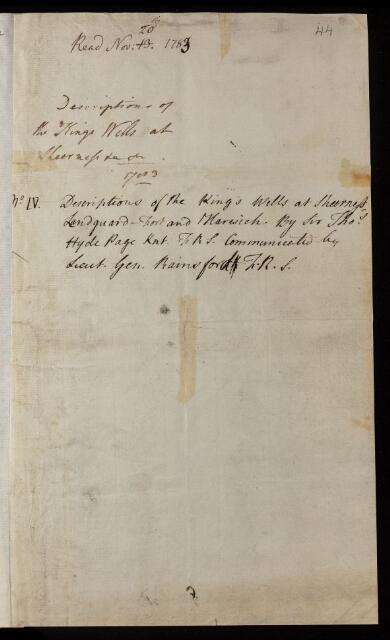 44
20th
Read Nov: 13. 1783
Descriptions of
the Kings Wells at
Sheerness &c &c.
1783
No IV. Descriptions of the King's Wells at Sheerness
Landguard-Fort and Harwich. By Sir Thos.
Hyde Page Knt. F.R.S. Communicated by
Lieut. Gen. Rainsford F.R.S.